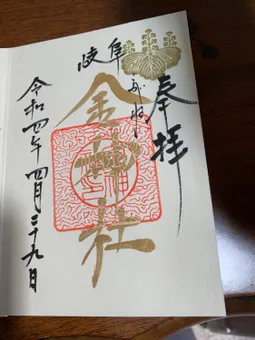 奉拝
岐阜
金神社
令和四年四月二十九日